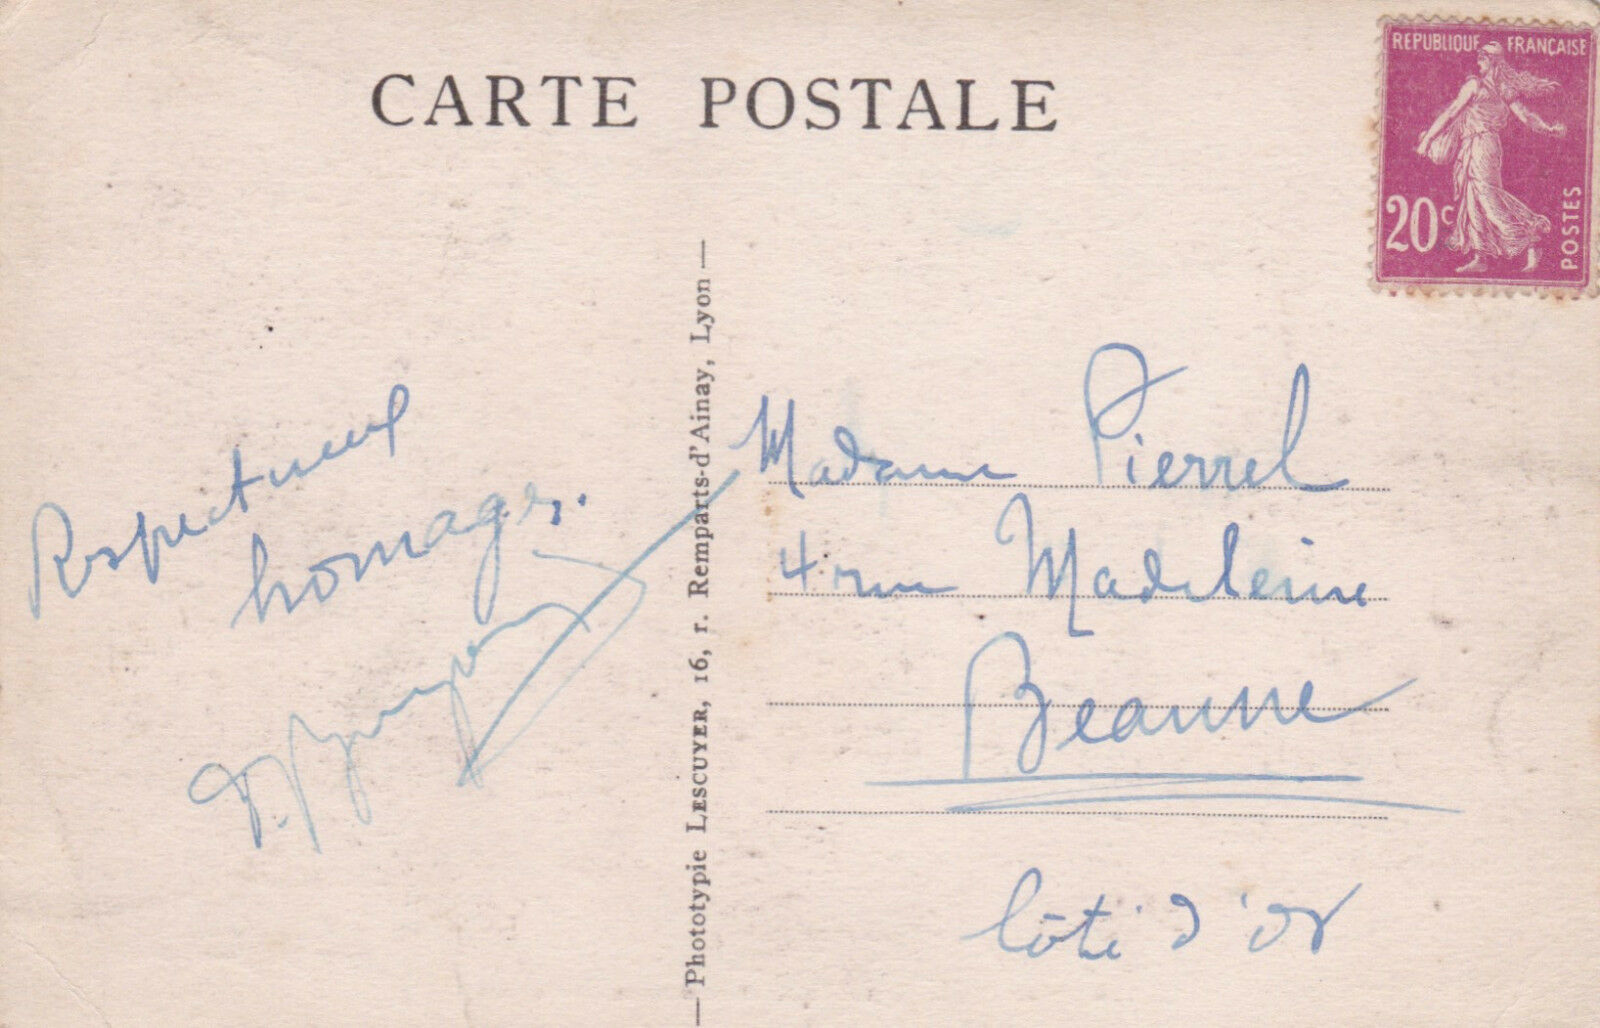 CARTE POSTALE
REPUBLIQUE FRANÇAISE
20c
POSTES
Respectueux
homages.
— Phototypie LESCUYER, 16, r. Remparts-d'Ainay, Lyon —
Madame Pierrel
4 rue Madeleine
Beaune
Côte d'Or